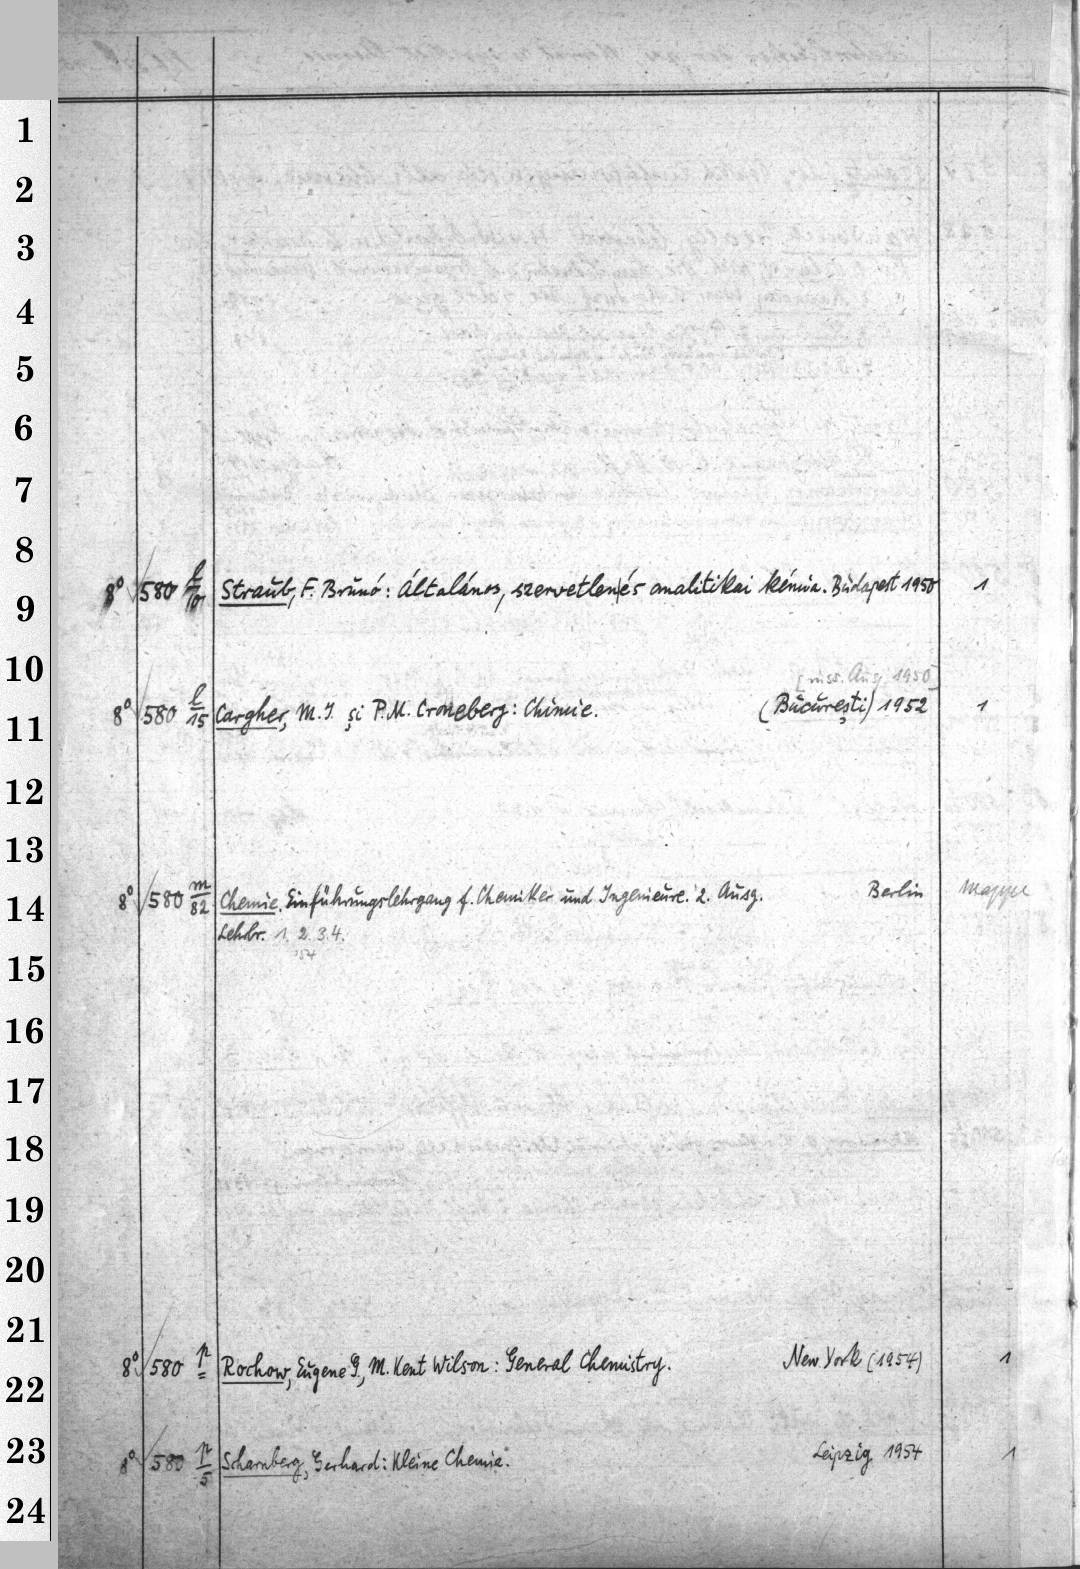 1
2
3
4
5
6
7
8
8° 580 l/10 Straub, F. Brunó: Általános, szervetlen és analitikai kémia. Budapest 1950 1
9
10
[russ. Ausg. 1950]
8° 580 l/15 Cargher, M. I. și P. M. Croneberg: Chimie. (București) 1952 1
11
12
13
8° 580 m/82 Chemie. Einführungslehrgang f. Chemiker und Ingenieure. 2. Ausg. Berlin Mappe
14
Lehbr. 1. 2. 3. 4.
15
16
17
18
19
20
21
8° 580 p Rochow, Eugene G., M. Kent Wilson: General Chemistry. New York (1954) 1
22
23
8° 580 p/5 Scharnberg, Gerhard: Kleine Chemie. Leipzig 1954 1
24